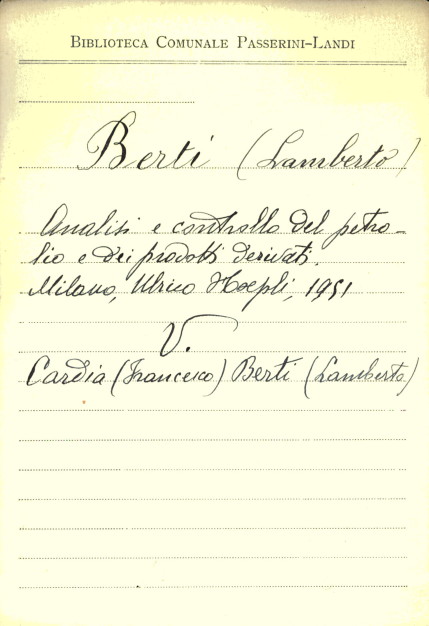 BIBLIOTECA COMUNALE PASSERINI-LANDI
Berti (Lamberto)
Analisi e controllo del petro-
lio e dei prodotti derivati.
Milano, Ulrico Hoepli, 1951
V.
Cardia (Francesco) Berti (Lamberto)